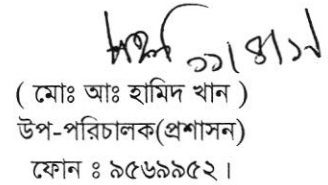 ১১/৪/১৭
( মোঃ আঃ হামিদ খান )
উপ-পরিচালক(প্রশাসন)
ফোন ঃ ৯৫৬৯৯৫২।